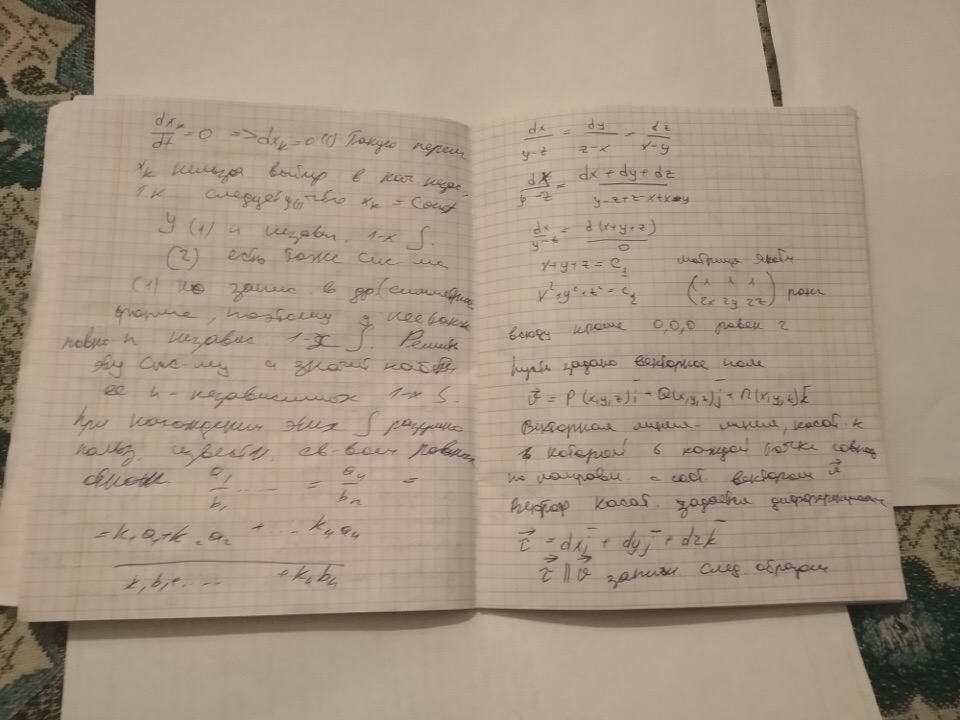 dxₖ/dt = 0 => dxₖ = 0 (1) Такую перем
xₖ нельзя выбир в кач незав.
т.к следует, что xₖ = Const
У (1) n незави. 1-х ∫.
(2) есть также сис-ма
(1) но запис. в др (симметрич
форме, поэтому у нее
ровно n независ 1-х ∫. Решив
эту сис-му а значит найти
ее n-независимых 1-х ∫.
При нахождении этих ∫
польз. извести. св-вом равных
a₁/b₁ .... = aₙ/bₙ =
= k₁a₁+k₂a₂ + ... kₙaₙ / k₁b₁+.... +kₙbₙ
dx/y-z = dy/z-x = dz/x-y
dx/y-z = dx+dy+dz/y-z+z-x+x-y
dx/y-z = d(x+y+z)/0
x+y+z = C₁ матрица Якоби
x²+y²+z² = C₂ (1 1 1 / 2x 2y 2z) ранг
всюду кроме 0,0,0 равен 2
Пусть задано векторное поле
v⃗ = P(x,y,z)i̅ + Q(x,y,z)j̅ + R(x,y,z)k̅
Векторная линия - линия, касат. к
которой в каждой точке совпад
по направл. с соот. вектором
Вектор касат. задается дифференциалом
τ⃗ = dxi̅ + dyj̅ + dzk̅
τ⃗ || v⃗ запиш. след. образом